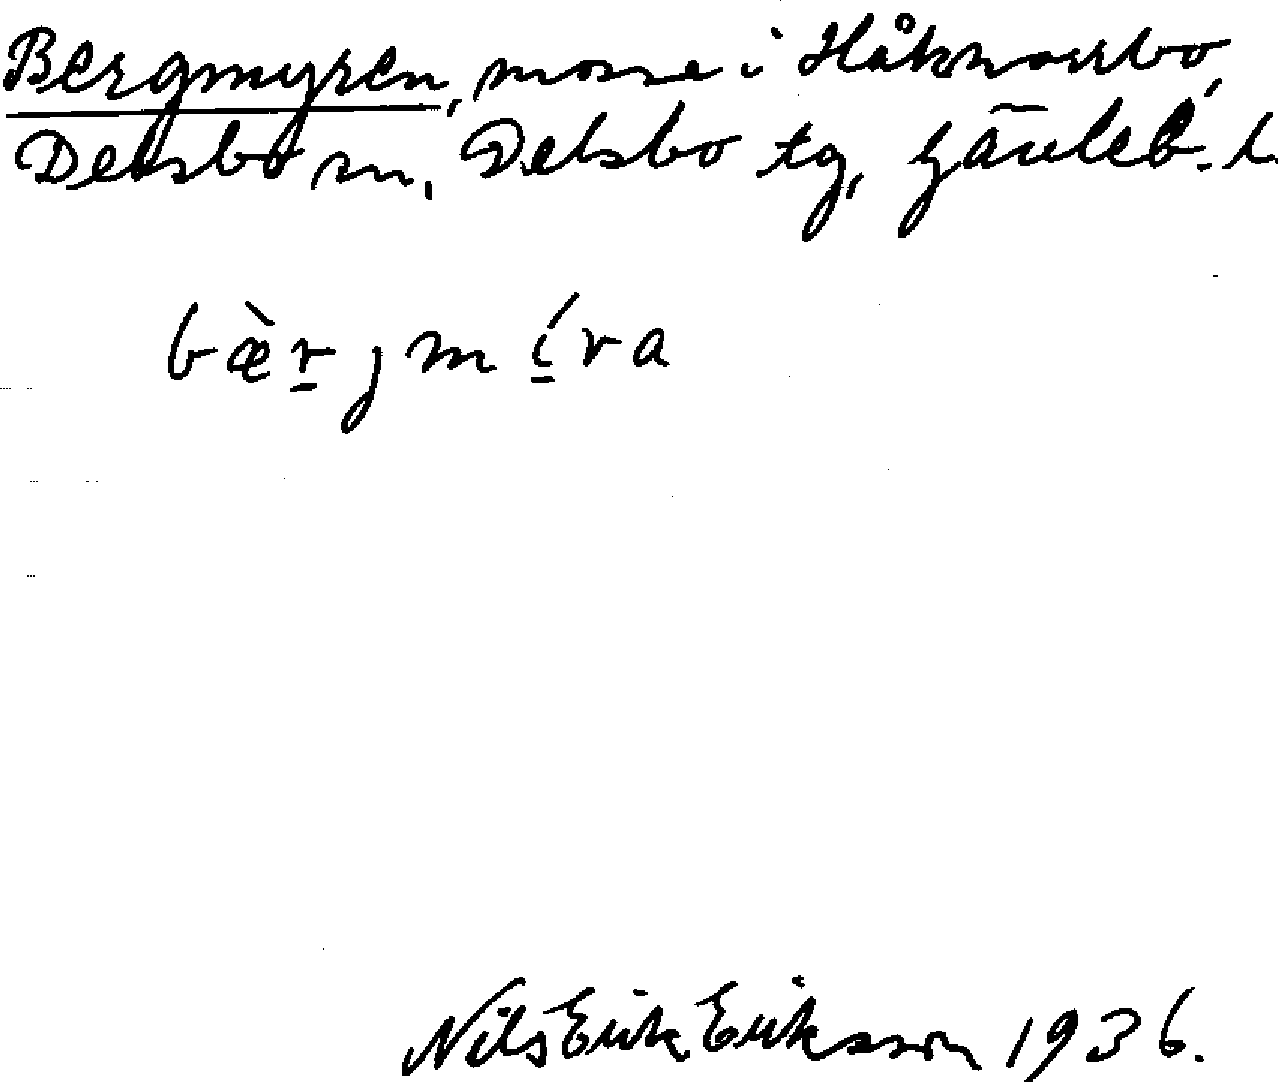 Bergmyren, mosse i Håknorrbo,
Delsbo sn, Delsbo tg, Gävleb. l.
bæ̀r̲jmí̲ra
Nils Erik Eriksson 1936.